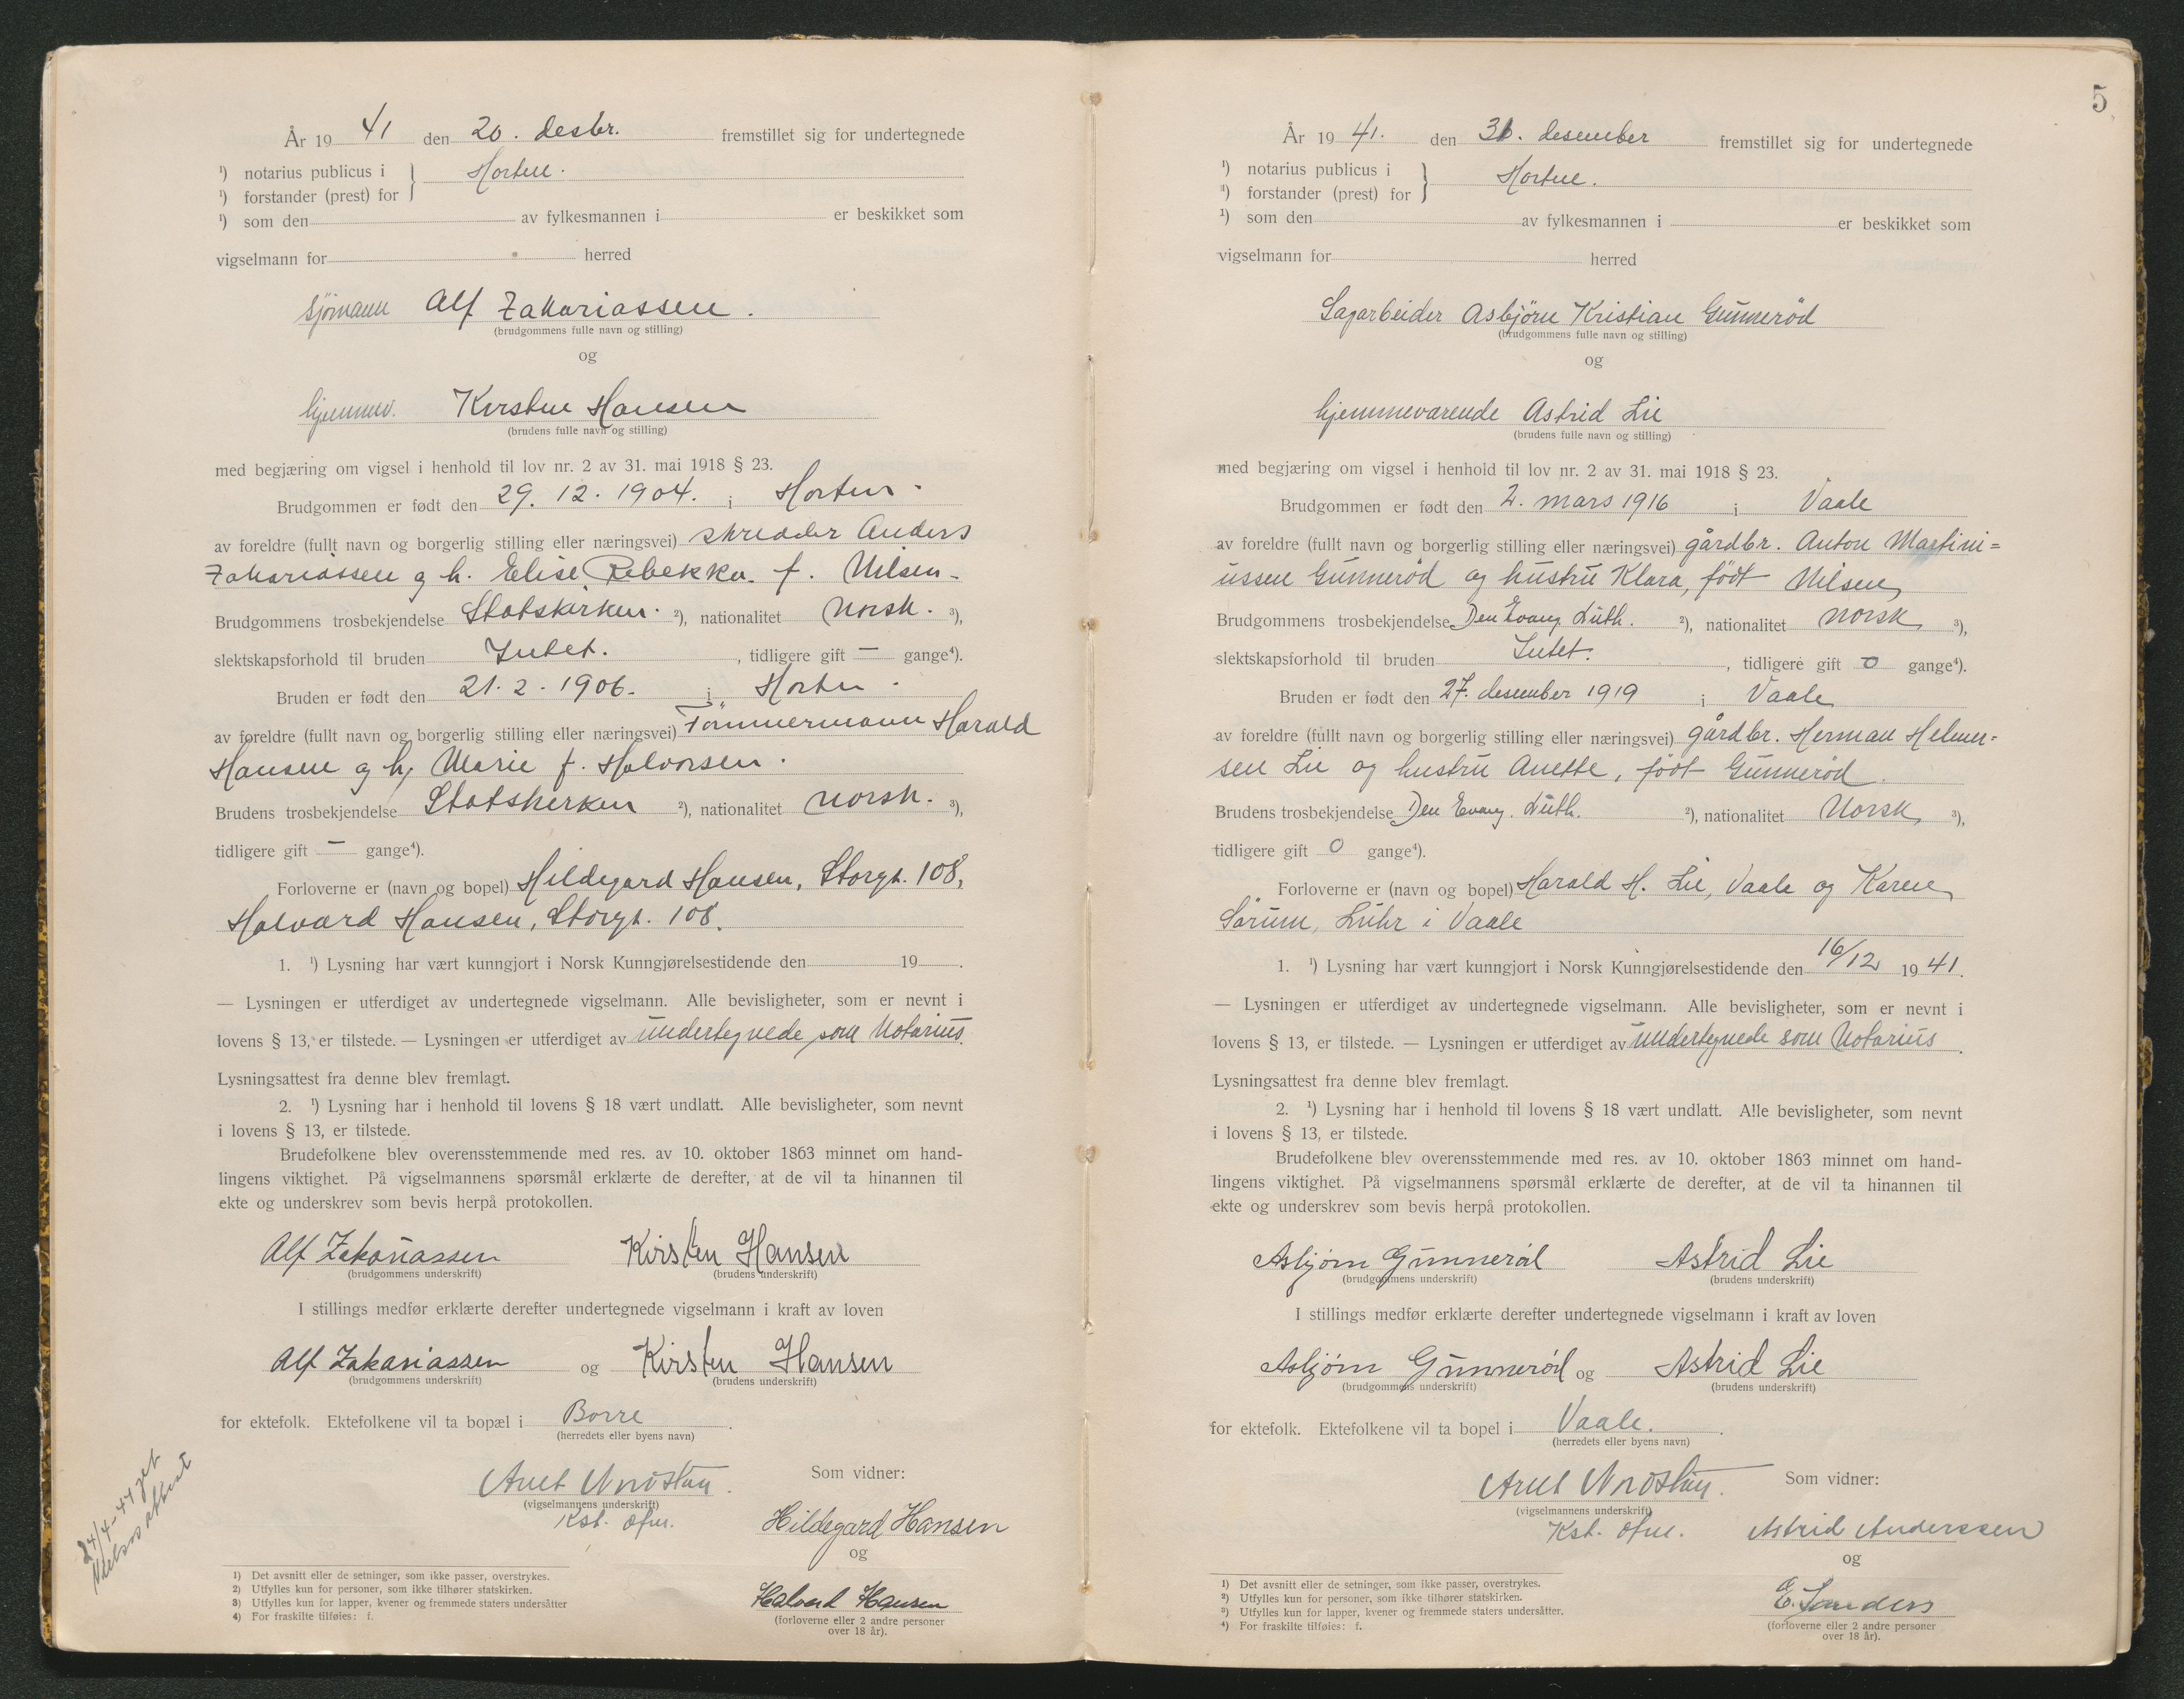 År 19 41 den 20. desbr. fremstillet sig for undertegnede
¹) notarius publicus i } Horten.
¹) forstander (prest) for
¹) som den av fylkesmannen i er beskikket som
vigselmann for herred
sjømann Alf Zakariassen.
(brudgommens fulle navn og stilling)
og
hjemmev. Kirsten Hansen
(brudens fulle navn og stilling)
med begjæring om vigsel i henhold til lov nr. 2 av 31. mai 1918 § 23.
Brudgommen er født den 29. 12. 1904. i Horten.
av foreldre (fullt navn og borgerlig stilling eller næringsvei) skredder Anders
Zakariassen og h. Elise Rebekka f. Nilsen.
Brudgommens trosbekjendelse Statskirken. ²), nationalitet Norsk. ³),
slektskapsforhold til bruden Intet. , tidligere gift — gange⁴).
Bruden er født den 21. 2. 1906. i Horten.
av foreldre (fullt navn og borgerlig stilling eller næringsvei) Tömmermann Harald
Hansen og h. Marie f. Halvorsen.
Brudens trosbekjendelse Statskirken ²), nationalitet norsk. ³),
tidligere gift — gange⁴).
Forloverne er (navn og bopel) Hildegard Hansen, Storgt. 108,
Halvard Hansen, Storgt. 108.
1. ¹) Lysning har vært kunngjort i Norsk Kunngjørelsestidende den 19 .
— Lysningen er utferdiget av undertegnede vigselmann. Alle bevisligheter, som er nevnt i
lovens § 13, er tilstede. — Lysningen er utferdiget av undertegnede som Notarius.
Lysningsattest fra denne blev fremlagt.
2. ¹) Lysning har i henhold til lovens § 18 vært undlatt. Alle bevisligheter, som nevnt
i lovens § 13, er tilstede.
Brudefolkene blev overensstemmende med res. av 10. oktober 1863 minnet om hand-
lingens viktighet. På vigselmannens spørsmål erklærte de derefter, at de vil ta hinannen til
ekte og underskrev som bevis herpå protokollen.
Alf Zakariassen Kirsten Hansen
(brudgommens underskrift) (brudens underskrift)
I stillings medfør erklærte derefter undertegnede vigselmann i kraft av loven
Alf Zakariassen og Kirsten Hansen
(brudgommens underskrift) (brudens underskrift)
for ektefolk. Ektefolkene vil ta bopæl i Borre .
(herredets eller byens navn)
Som vidner:
(vigselmannens underskrift)
Kst. Hildegard Hansen
og
Halvard Hansen
(forloverne eller 2 andre personer
over 18 år).
24/4-44
¹) Det avsnitt eller de setninger, som ikke passer, overstrykes.
²) Utfylles kun for personer, som ikke tilhører statskirken.
³) Utfylles kun for lapper, kvener og fremmede staters undersåtter
⁴) For fraskilte tilføies: f.
5
År 19 41. den 31. desember fremstillet sig for undertegnede
¹) notarius publicus i } Horten.
¹) forstander (prest) for
¹) som den av fylkesmannen i er beskikket som
vigselmann for herred
Sagarbeider Asbjörn Kristian Gunneröd
(brudgommens fulle navn og stilling)
og
hjemmeværende Astrid Lie
(brudens fulle navn og stilling)
med begjæring om vigsel i henhold til lov nr. 2 av 31. mai 1918 § 23.
Brudgommen er født den 2. mars 1916 i Vaale
av foreldre (fullt navn og borgerlig stilling eller næringsvei) gårdbr. Anton Martini=
ussen Gunneröd og hustru Klara, födt Nilsen
Brudgommens trosbekjendelse Den Evang. Luth. ²), nationalitet norsk ³),
slektskapsforhold til bruden Intet. , tidligere gift 0 gange⁴).
Bruden er født den 27. desember 1919 i Vaale
av foreldre (fullt navn og borgerlig stilling eller næringsvei) gårdbr. Herman Helmer=
sen Lie og hustru Anette, födt Gunneröd.
Brudens trosbekjendelse Den Evang. Luth. ²), nationalitet Norsk ³),
tidligere gift 0 gange⁴).
Forloverne er (navn og bopel) Harald H. Lie, Vaale og Karen
Sørum, i Vaale
1. ¹) Lysning har vært kunngjort i Norsk Kunngjørelsestidende den 16/12 19 41.
— Lysningen er utferdiget av undertegnede vigselmann. Alle bevisligheter, som er nevnt i
lovens § 13, er tilstede. — Lysningen er utferdiget av undertegnede som Notarius .
Lysningsattest fra denne blev fremlagt.
2. ¹) Lysning har i henhold til lovens § 18 vært undlatt. Alle bevisligheter, som nevnt
i lovens § 13, er tilstede.
Brudefolkene blev overensstemmende med res. av 10. oktober 1863 minnet om hand-
lingens viktighet. På vigselmannens spørsmål erklærte de derefter, at de vil ta hinannen til
ekte og underskrev som bevis herpå protokollen.
Asbjörn Gunneröd Astrid Lie
(brudgommens underskrift) (brudens underskrift)
I stillings medfør erklærte derefter undertegnede vigselmann i kraft av loven
Asbjörn Gunneröd og Astrid Lie
(brudgommens underskrift) (brudens underskrift)
for ektefolk. Ektefolkene vil ta bopel i Vaale. .
(herredets eller byens navn)
Som vidner:
(vigselmannens underskrift)
Kst. Astrid Anderssen
og
E. Sanders
(forloverne eller 2 andre personer
over 18 år).
¹) Det avsnitt eller de setninger, som ikke passer, overstrykes.
²) Utfylles kun for personer, som ikke tilhører statskirken.
³) Utfylles kun for lapper, kvener og fremmede staters undersåtter.
⁴) For fraskilte tilføies: f.